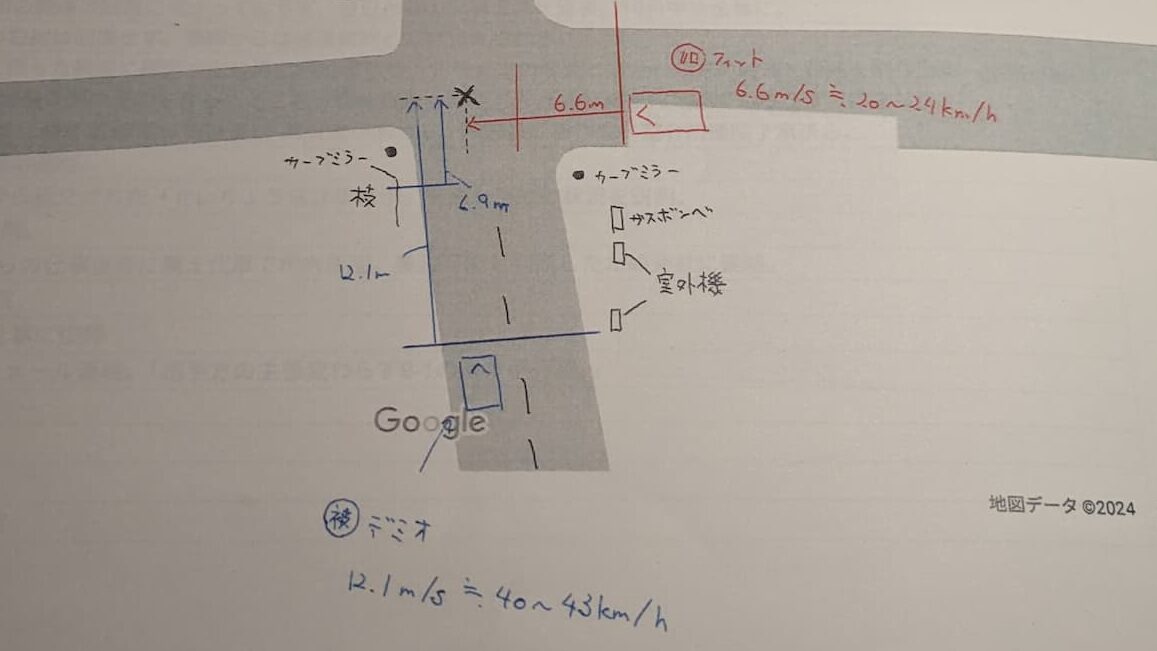 フィット
6.6m
6.6m/s ≒ 20～24km/h
カーブミラー
カーブミラー
枝
6.9m
ガスボンベ
12.1m
室外機
Google
地図データ ©2024
被 デミオ
12.1m/s ≒ 40～43km/h